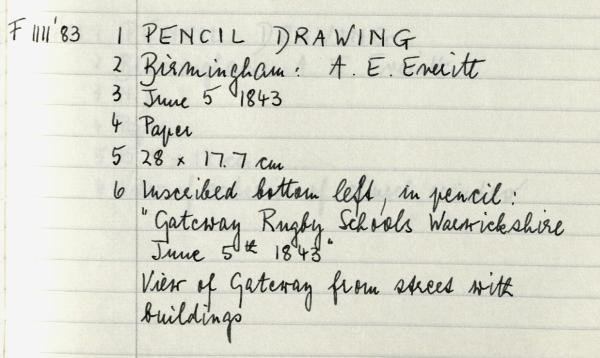 F 1111'83 1 PENCIL DRAWING
2 Birmingham: A. E. Everitt
3 June 5 1843
4 Paper
5 28 x 17.7 cm
6 Inscribed bottom left, in pencil:
"Gateway Rugby Schools Warwickshire
June 5th 1843"
View of Gateway from street with
buildings